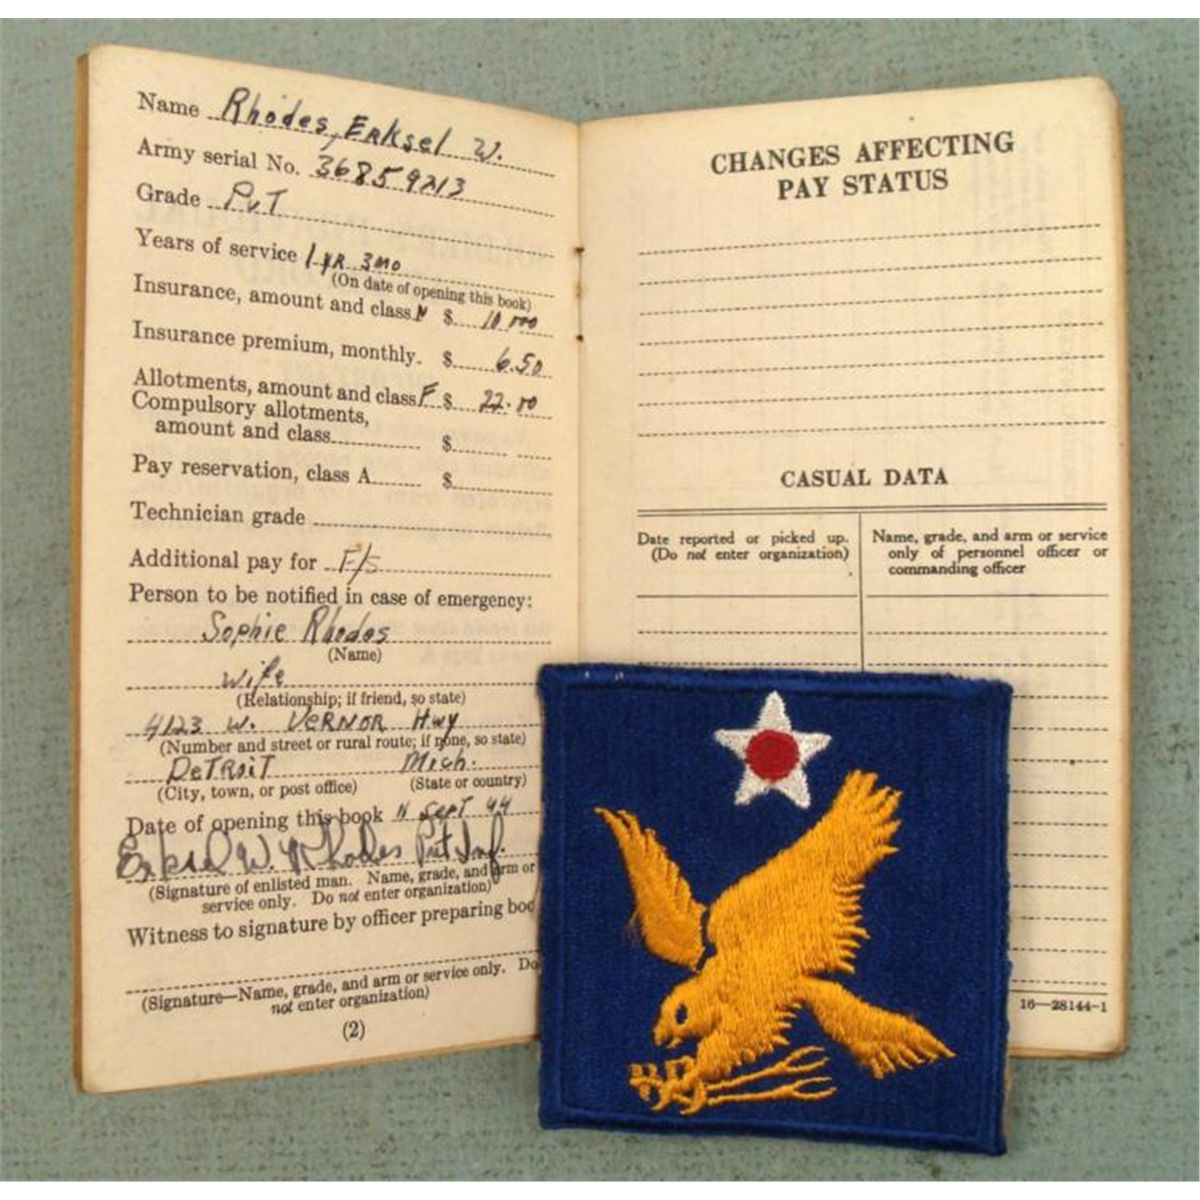 Name Rhodes, Erksel W.
Army serial No. 36859213
Grade PvT
Years of service 1 YR 3 mo
(On date of opening this book)
Insurance, amount and class N $ 10 000
Insurance premium, monthly. $ 6.50
Allotments, amount and class F $ 22.00
Compulsory allotments,
amount and class $
Pay reservation, class A $
Technician grade
Additional pay for F/S
Person to be notified in case of emergency:
Sophie Rhodes
(Name)
wife
(Relationship; if friend, so state)
4123 W. VERNOR Hwy
(Number and street or rural route; if none, so state)
DeTRoiT Mich.
(City, town, or post office) (State or country)
Date of opening this book 11 SepT 44
Erksel W. Rhodes Pvt Inf.
(Signature of enlisted man. Name, grade, and arm or
service only. Do not enter organization)
Witness to signature by officer preparing boo
(Signature—Name, grade, and arm or service only. Do
not enter organization)
(2)
CHANGES AFFECTING
PAY STATUS
CASUAL DATA
Date reported or picked up.
(Do not enter organization)
Name, grade, and arm or service
only of personnel officer or
commanding officer
16—28144-1